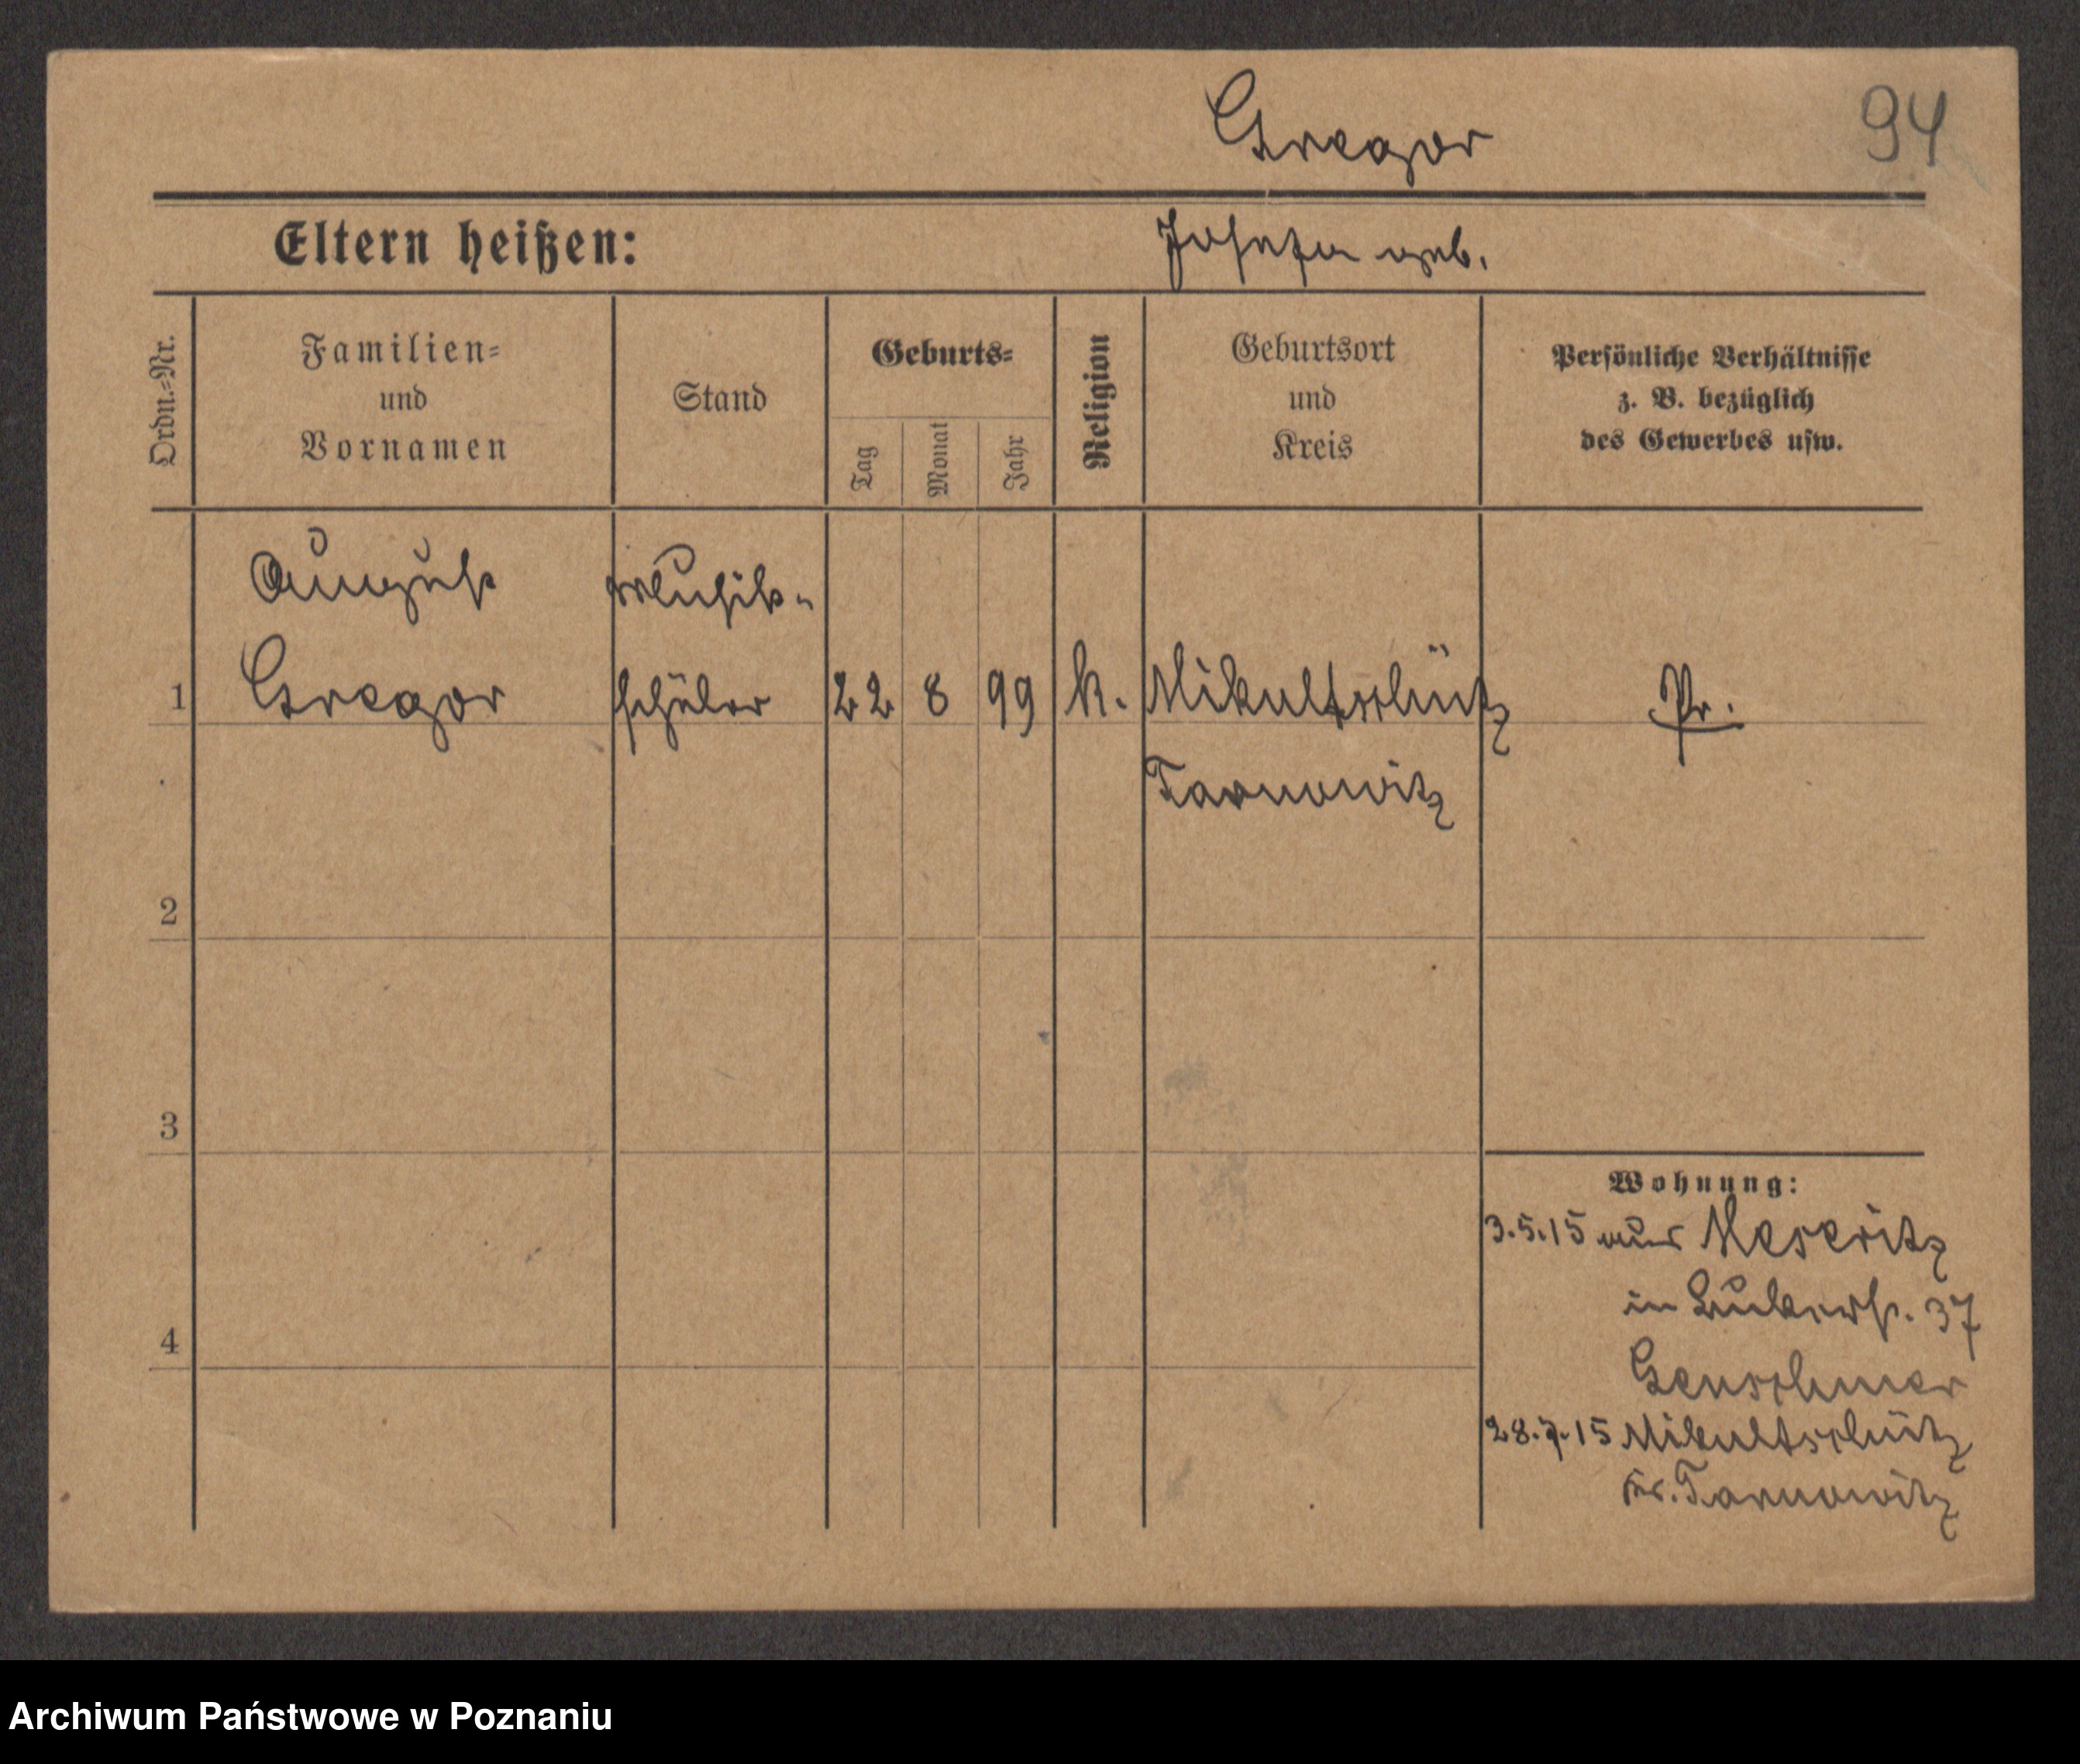 Gregor
94
Eltern heißen:
Josefa geb.
Ordn.=Nr.
Familien=
und
Vornamen
Stand
Geburts=
Tag
Monat
Jahr
Religion
Geburtsort
und
Kreis
Persönliche Verhältnisse
z. B. bezüglich
des Gewerbes usw.
August
Musik-
1
Gregor
schüler
22
8
99
k.
Mikultschütz
Pr.
Tarnowitz
2
3
4
Wohnung:
3.5.15 aus Meseritz
in 37
Genschmer
28.7.15 Mikultschütz
Kr. Tarnowitz
Archiwum Państwowe w Poznaniu